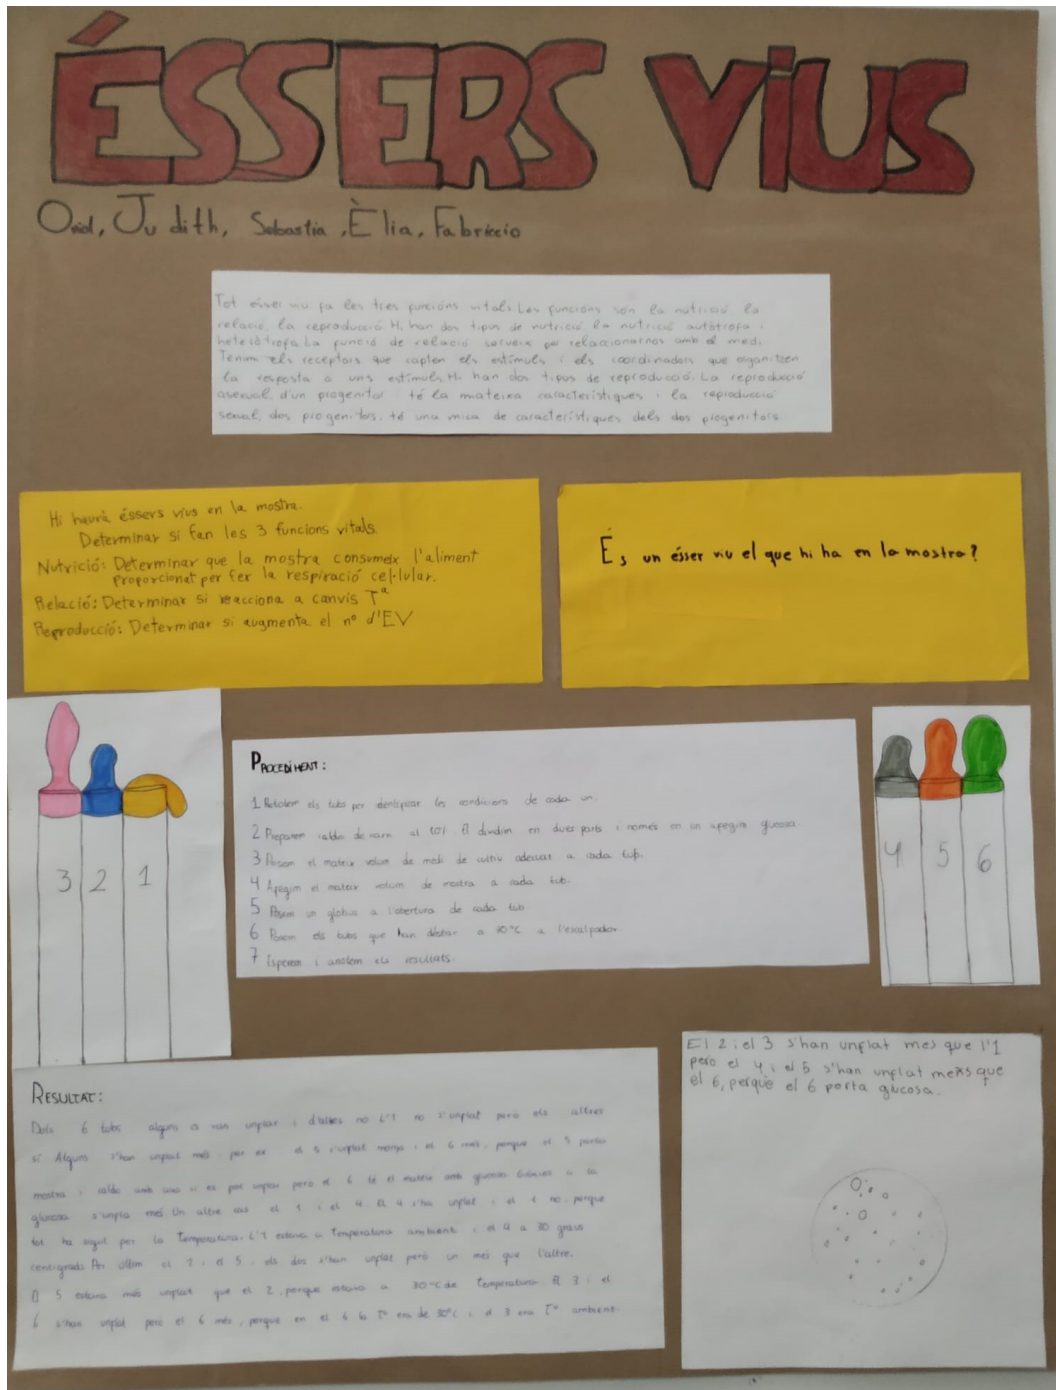 ÉSSERS ViUS
Oriol, Judith, Sebastia, Èlia, Fabriccio
Tot ésser viu fa les tres funcións vitals. Les funcions són la nutrició, la
relació, la reproducció. Hi han dos tipus de nutrició, la nutrició autòtrofa i
heteròtrofa. La funció de relació serveix per relaccionarnos amb el med.
Tenim els receptors que capten els estímuls i els coordinadors que organitzen
la resposta a uns estímuls. Hi han dos tipus de reproducció. La reproducció
asexual, d'un progenitor té la mateixa característiques i la reproducció
sexual, dos progenitors, té una mica de característiques dels dos progenitors
Hi haurà éssers vius en la mostra.
Determinar si fan les 3 funcions vitals.
Nutrició: Determinar que la mostra consumeix l'aliment
proporcionat per fer la respiració cel·lular.
Relació: Determinar si reacciona a canvis Tª
Reproducció: Determinar si augmenta el nº d'EV
És un ésser viu el que hi ha en la mostra?
3 2 1
PROCEDIMENT:
1 Retolem els tubs per identificar les condicions de cada un.
2 Preparem caldo de carn al 10%. El dividim en dues parts i només en un apegim glucosa
3 Posem el mateix volum de medi de cultiu adequat a cada tub.
4 Apegim el mateix volum de mostra a cada tub.
5 Posem un globus a l'obertura de cada tub
6 Posem els tubs que han d'estar a 30°C a l'escalfador.
7 Esperem i anotem els resultats.
4 5 6
RESULTAT:
Dels 6 tubs alguns es van unflar i d'altres no L'1 no s'unflat però els altres
sí Alguns s'han unflat més, per ex el 5 s'unflat menys i el 6 més, perque el 5 porta
mostra i caldo amb això si es pot unflar però el 6 té el mateix amb glucosa Gràcies a la
glucosa s'unfla més Un altre cas el 1 i el 4. El 4 s'ha unflat i el 1 no, perque
tot ha sigut per la Temperatura. L'1 estava a Temperatura ambient i el 4 a 30 graus
centigrads Per últim el 2 i el 5, els dos s'han unflat però un més que l'altre.
El 5 estava més unflat que el 2, perque estava a 30°C de Temperatura. El 3 i el
6 s'han unflat però el 6 més, perque en el 6 la Tª era de 30°C i el 3 era Tª ambient.
El 2 i el 3 s'han unflat mes que l'1
però el 4 i el 5 s'han unflat menys que
el 6, perquè el 6 porta glucosa.